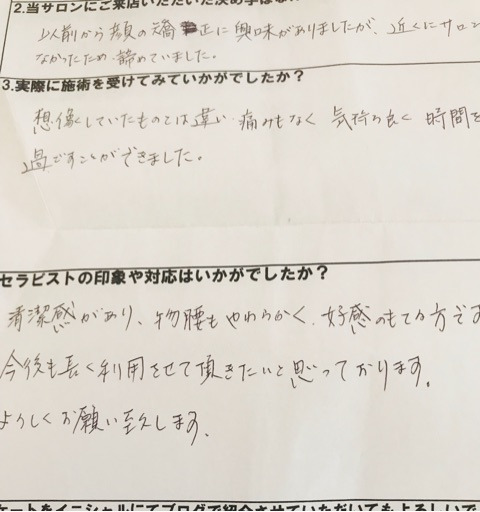 2.当サロンにご来店いただいた決め手はな
以前から顔の矯正に興味がありましたが、近くにサロン
なかったため 諦めていました。
3.実際に施術を受けてみていかがでしたか？
想像していたものとは違い 痛みもなく 気持ち良く 時間を
過ごすことができました。
セラピストの印象や対応はいかがでしたか？
清潔感があり、物腰もやわらかく、好感のもてる方です
今後も長く利用させて頂きたいと思っております。
よろしくお願い致します。
ケートをイニシャルにてブログで紹介させていただいてもよろしいで